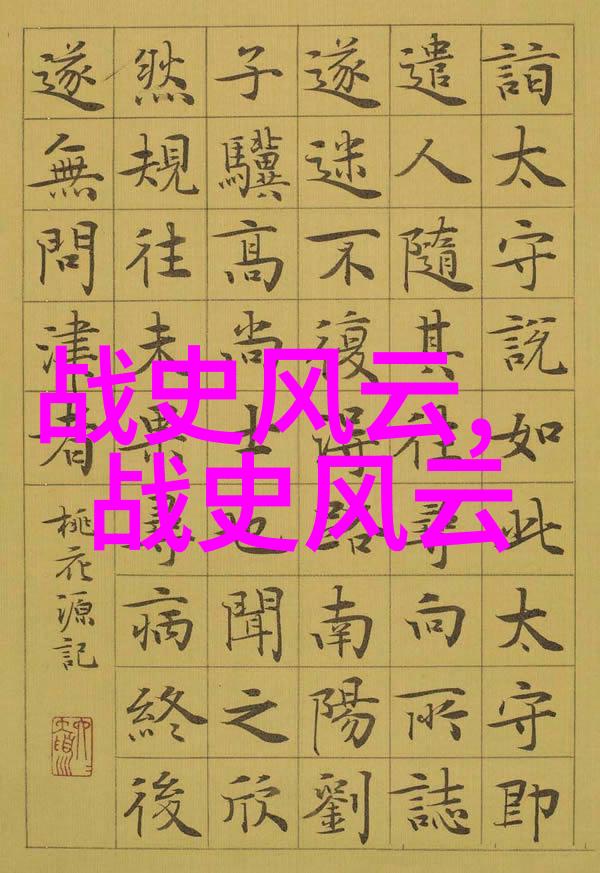 詣太守說如此太守即
遣人隨其往尋向所誌
遂迷不復得路南陽劉
子驥高尚士也聞之欣
然規往未果尋病終後
遂無問津者
桃花源記
战史风云,
战史风云